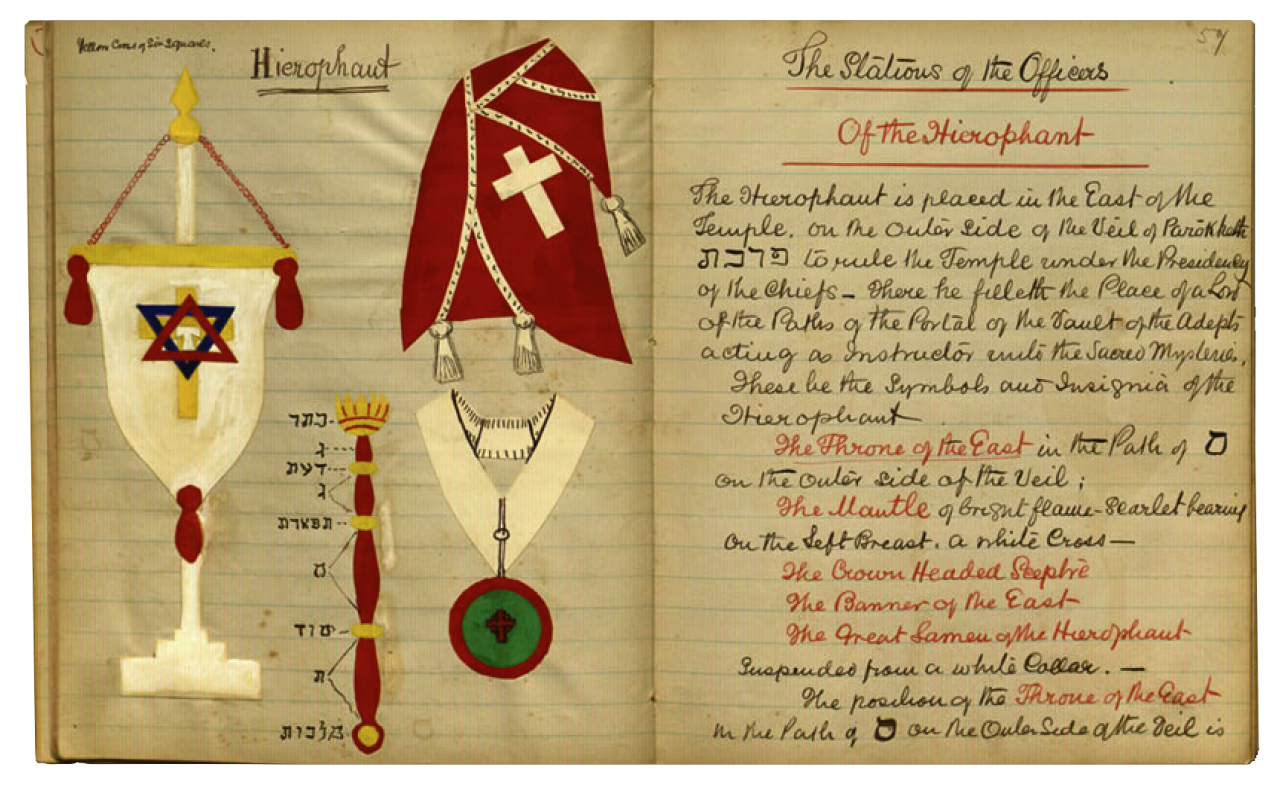 Yellow Cross of Six Squares.
Hierophant
כתר
ג
דעת
ג
תפארת
ס
יסוד
ת
מלכות
59
The Stations of the Officers
Of the Hierophant
The Hierophant is placed in the East of the
Temple, on the outer side of the Veil of Parōkheth
פרכת to rule the Temple under the Presidency
of the Chiefs – There he filleth the Place of a Lord
of the Paths of the Portal of the Vault of the Adepts
acting as Instructor unto the Sacred Mysteries.
These be the Symbols and Insignia of the
Hierophant
The Throne of the East in the Path of ס
on the outer side of the Veil;
The Mantle of bright flame-Scarlet bearing
on the Left Breast. a white Cross –
The Crown Headed Sceptre
The Banner of the East
The Great Lamen of the Hierophant
Suspended from a white Collar. –
The position of the Throne of the East
in the Path of ס on the Outer Side of the Veil is